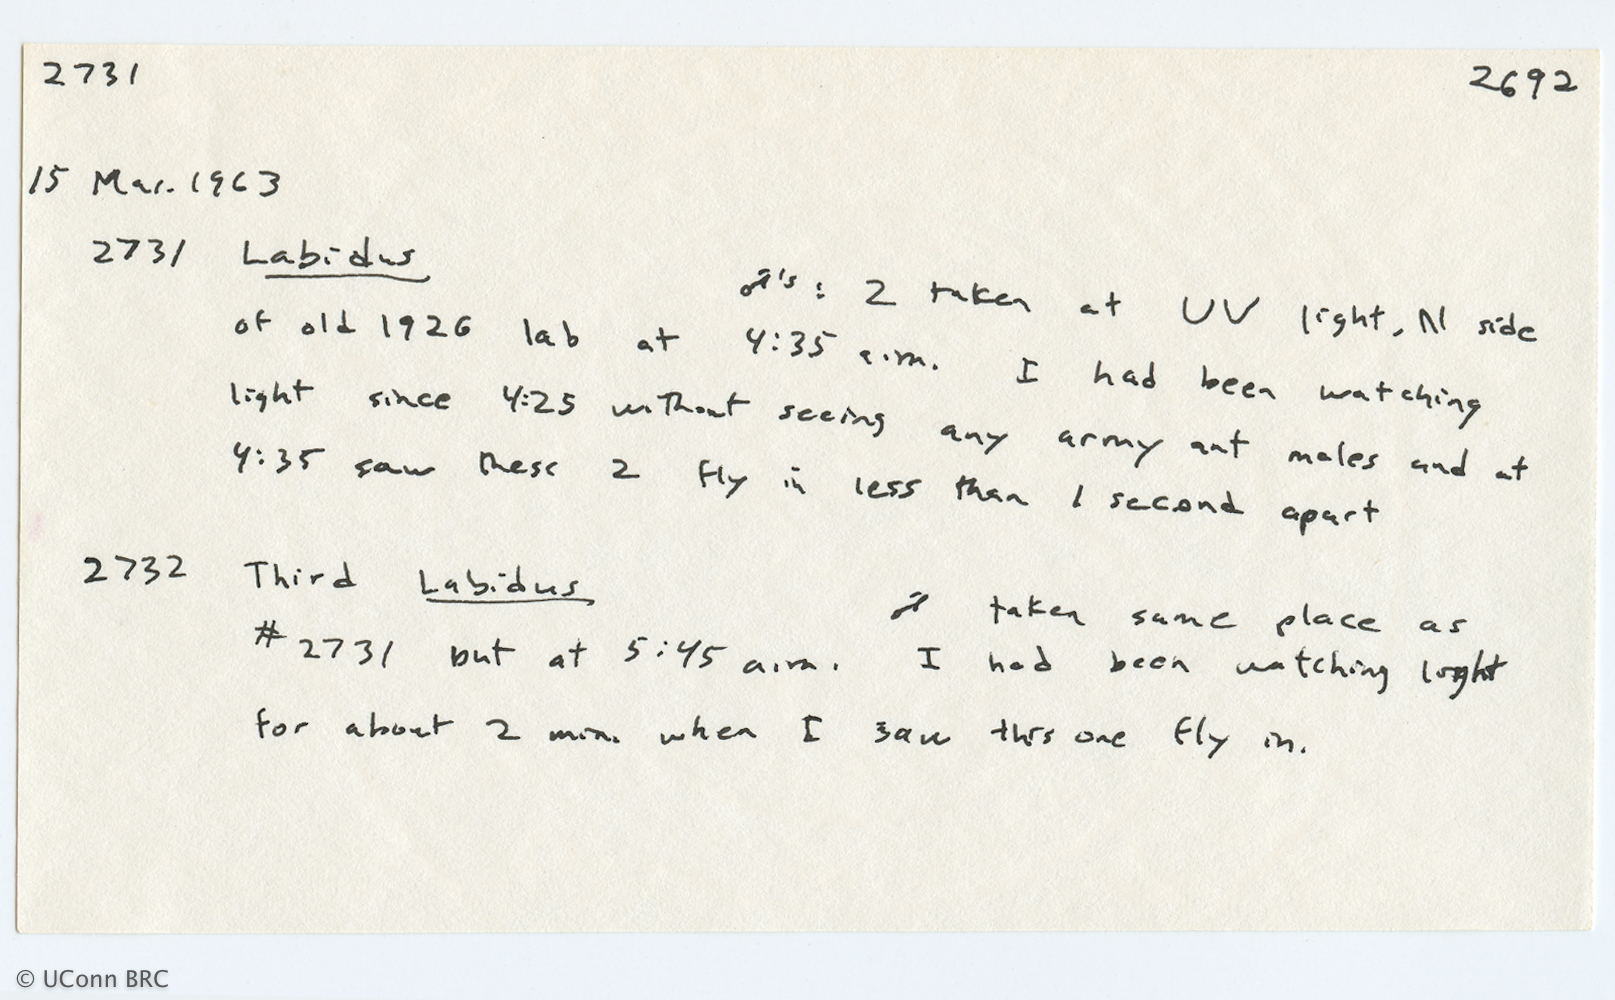 2731 2692
15 Mar. 1963
2731 Labidus ♂'s: 2 taken at UV light, N side
of old 1926 lab at 4:35 a.m. I had been watching
light since 4:25 without seeing any army ant males and at
4:35 saw these 2 fly in less than 1 second apart
2732 Third Labidus ♂ taken same place as
#2731 but at 5:45 a.m. I had been watching light
for about 2 min. when I saw this one fly in.
© UConn BRC